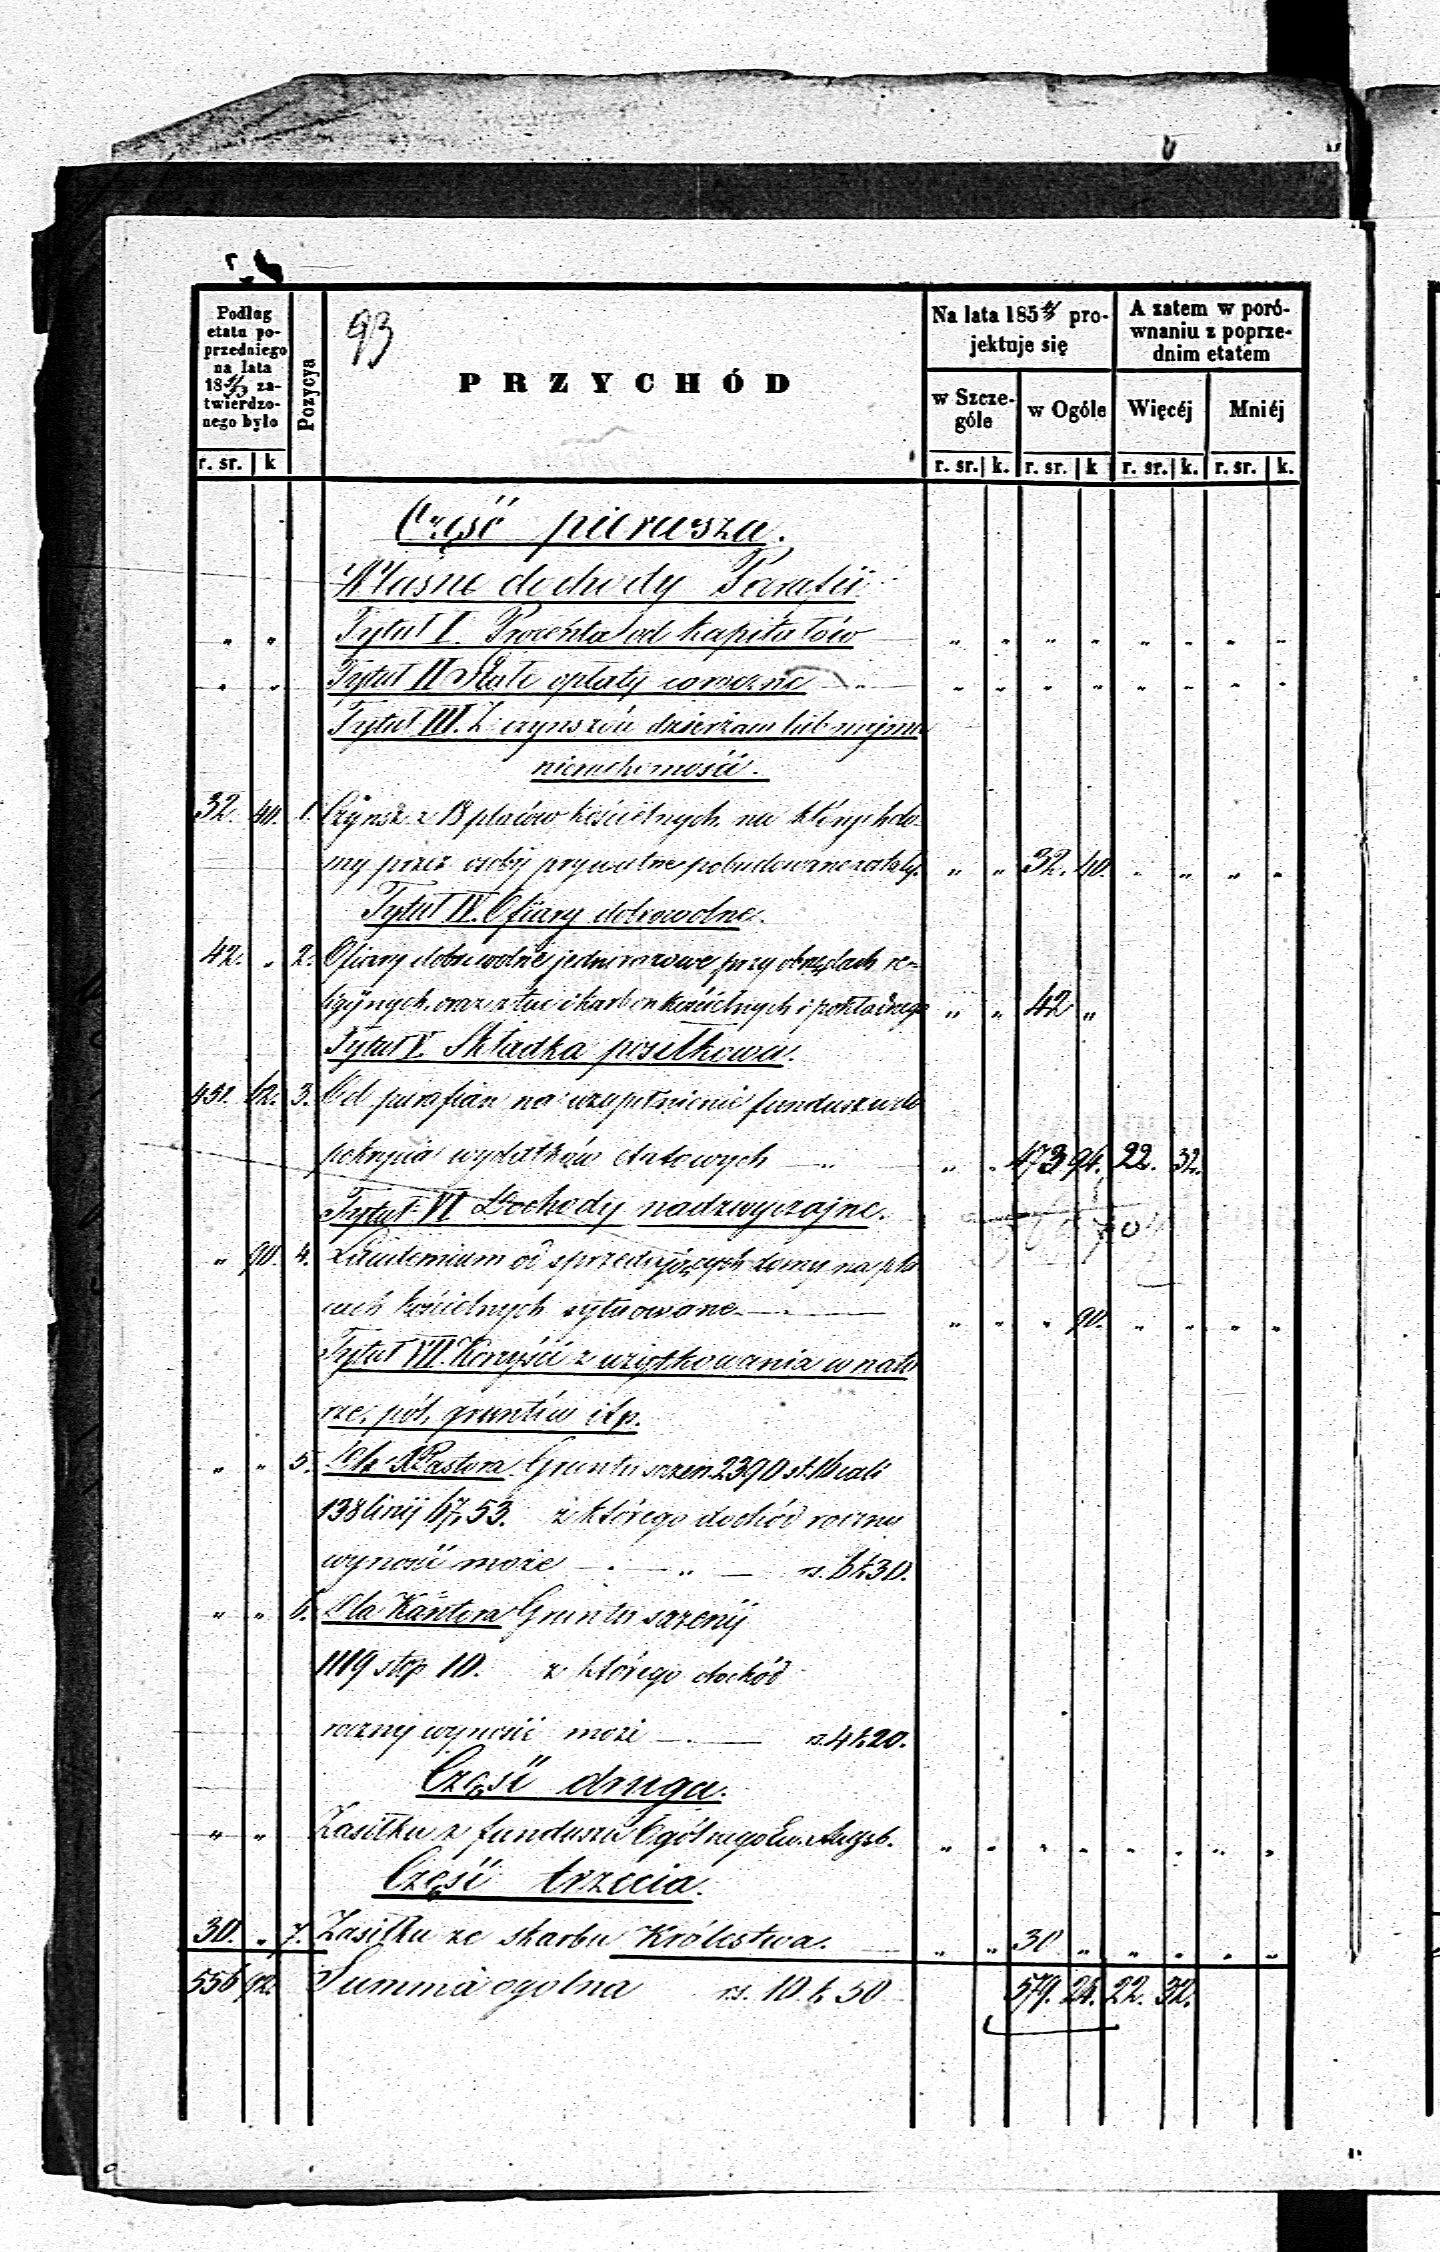 93
Podług
etatu po-
przedniego
na lata
18 51/53 za-
twierdzo-
nego było
Pozycya
PRZYCHÓD
Na lata 185 pro-
jektuje się
A zatem w poró-
wnaniu z poprze-
dnim etatem
w Szcze-
góle
w Ogóle
Więcéj
Mniéj
r. sr. k r. sr. k. r. sr. k r. sr. k. r. sr. k.
Część pierwsza.
Własne dochody Parafii
" " Tytuł I. Procenta od kapitałów " " " " " " " "
" " Tytuł II Stałe opłaty coroczne " " " " " " " "
Tytuł III. Z czynszów dzierżaw lub najmu
nieruchomości.
32. 40. 1. Czynsz z 18 placów kościelnych na których do-
my przez osoby prywatne pobudowane zostały. " " 32. 40. " " " "
Tytuł IV. Ofiary dobrowolne.
42. " 2. Ofiary dobrowolne jednorazowe przy obrzędach re-
ligijnych, oraz z tac i karbon kościelnych i pokładnego " " 42 "
Tytuł V. Składka posiłkowa.
451. 62. 3. Od parafian na uzupełnienie funduszu do
pokrycia wydatków etatowych " " 473 94. 22. 32.
Tytuł VI Dochody nadzwyczajne.
" 90. 4. Laudemium od sprzedających domy na pla
cach kościelnych sytuowane " " " 90. " " " "
Tytuł VII. Korzyści z użytkowania w natu
rze, pól, gruntów itp.
" " 5. Dla X Pastora Gruntu sążen 2390 st. 16 cali
138 linij 67,53. z którego dochód roczny
wynosić może rs. 6 k 30.
" " 6. Dla Kantora Gruntu sążenij
1119 stop 10. z którego dochód
roczny wynosić może rs. 4 k 20.
Część druga.
" " Zasiłku z funduszu Ogólnego Ew. Augsb. " " " " " " " "
Część trzecia.
30. " 7. Zasiłku ze skarbu Królestwa. " " 30 " " " " "
556 92. Summa ogolna rs. 10. k 50 579. 24. 22. 32.